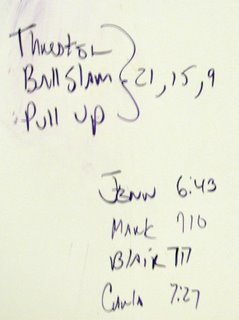 Thruster
Ball Slam } 21, 15, 9
Pull up
Jenn 6:43
Mark 710
Blair 717
Carla 7:27